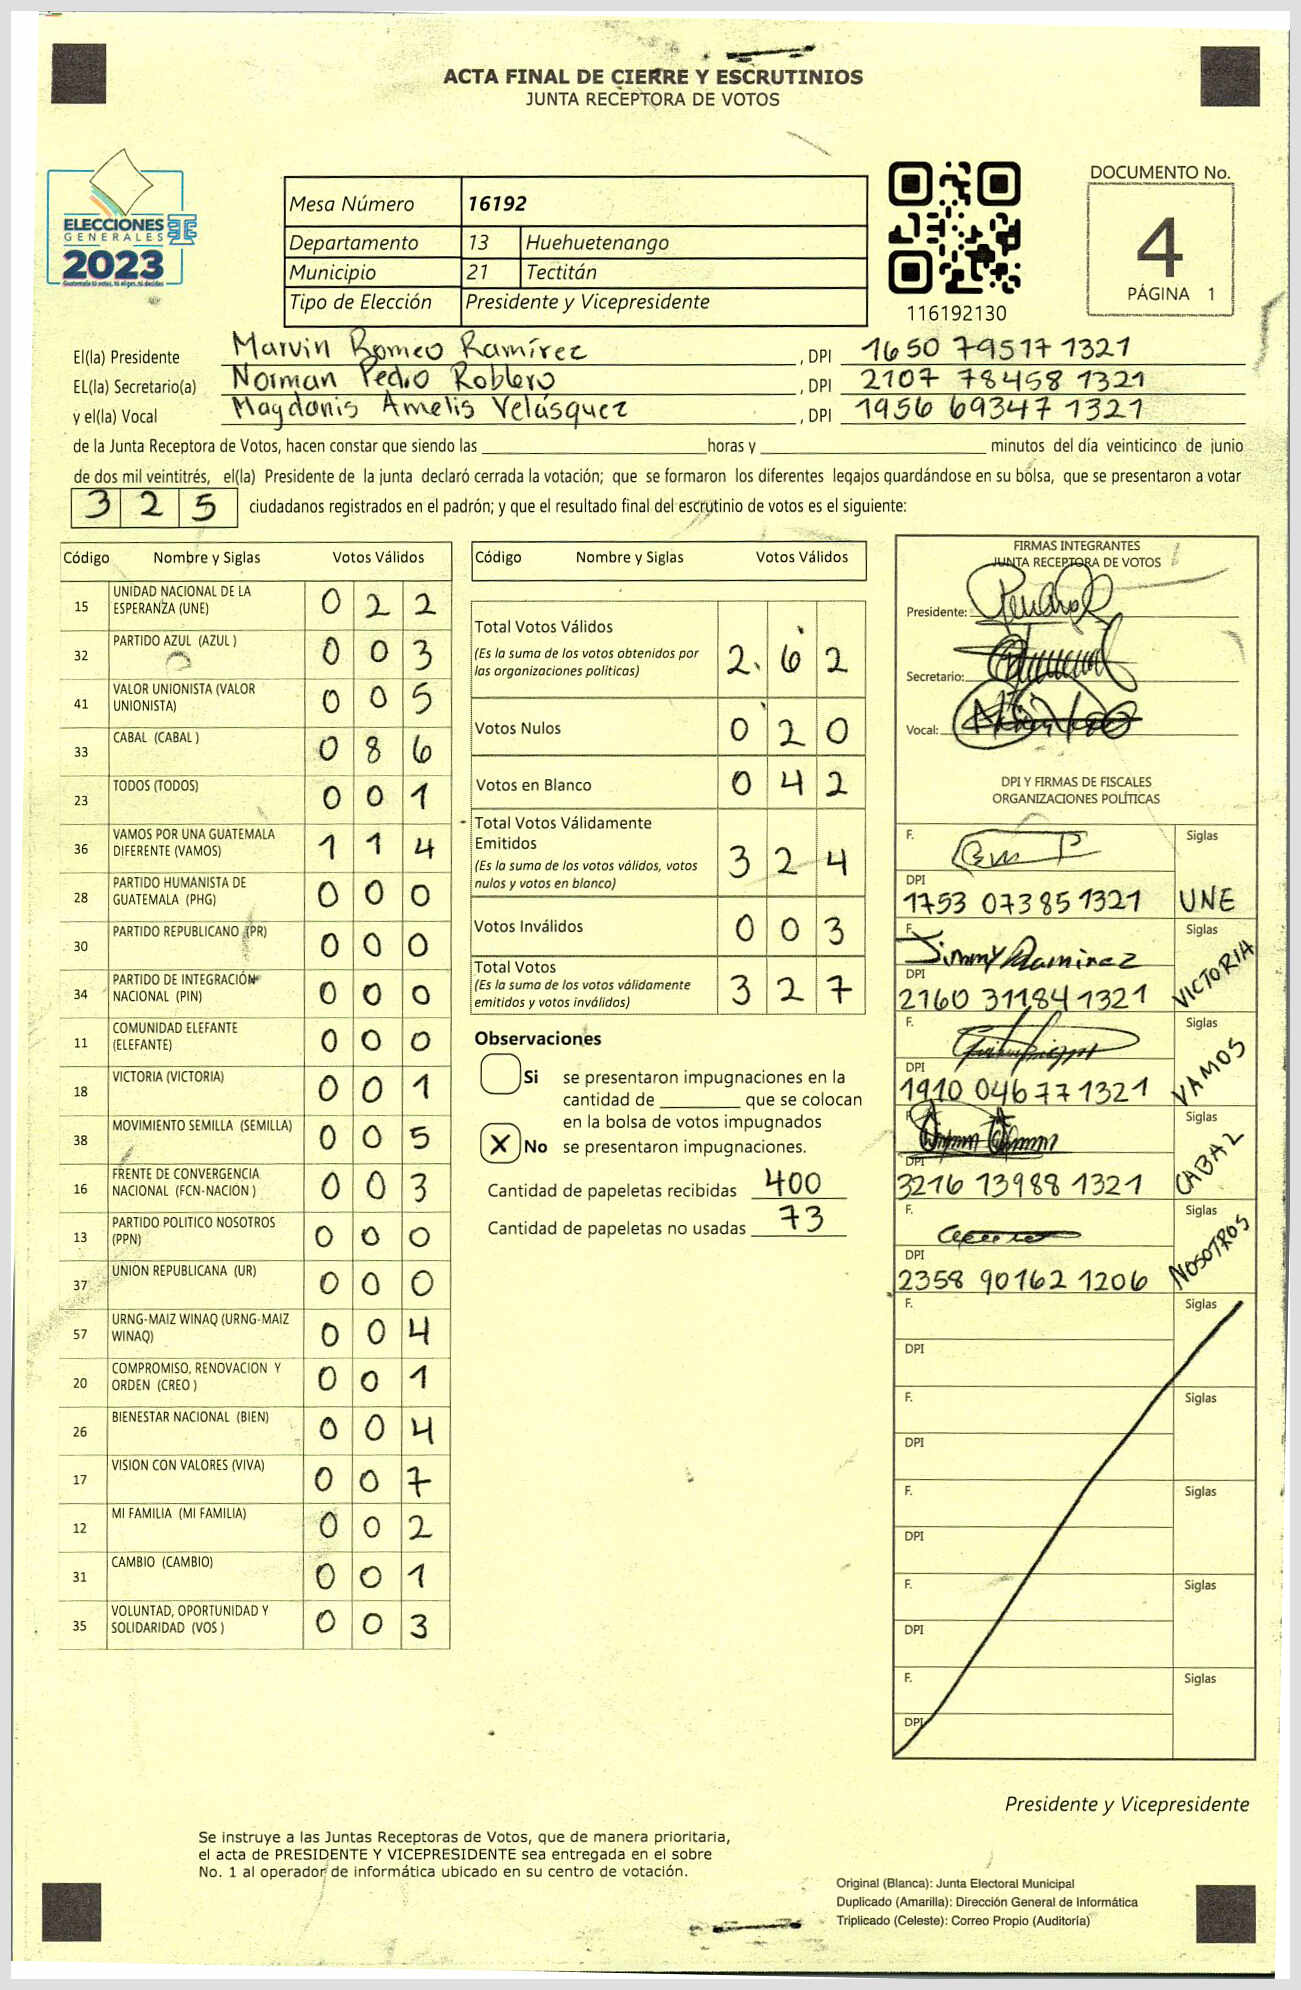 ACTA FINAL DE CIERRE Y ESCRUTINIOS
JUNTA RECEPTORA DE VOTOS
ELECCIONES
GENERALES
2023
Mesa Número 16192
Departamento 13 Huehuetenango
Municipio 21 Tectitán
Tipo de Elección Presidente y Vicepresidente
116192130
DOCUMENTO No.
4
PÁGINA 1
El(la) Presidente Marvin Romeo Ramírez, DPI 1650 79517 1321
EL(la) Secretario(a) Norman Pedro Roblero, DPI 2107 78458 1321
y el(la) Vocal Magdonis Amelis Velásquez, DPI 1956 69347 1321
de la Junta Receptora de Votos, hacen constar que siendo las horas y minutos del día veinticinco de junio
de dos mil veintitrés, el(la) Presidente de la junta declaró cerrada la votación; que se formaron los diferentes legajos guardándose en su bolsa, que se presentaron a votar
325 ciudadanos registrados en el padrón; y que el resultado final del escrutinio de votos es el siguiente:
Código Nombre y Siglas Votos Válidos
15 UNIDAD NACIONAL DE LA ESPERANZA (UNE) 0 2 2
32 PARTIDO AZUL (AZUL ) 0 0 3
41 VALOR UNIONISTA (VALOR UNIONISTA) 0 0 5
33 CABAL (CABAL ) 0 8 6
23 TODOS (TODOS) 0 0 1
36 VAMOS POR UNA GUATEMALA DIFERENTE (VAMOS) 1 1 4
28 PARTIDO HUMANISTA DE GUATEMALA (PHG) 0 0 0
30 PARTIDO REPUBLICANO (PR) 0 0 0
34 PARTIDO DE INTEGRACIÓN NACIONAL (PIN) 0 0 0
11 COMUNIDAD ELEFANTE (ELEFANTE) 0 0 0
18 VICTORIA (VICTORIA) 0 0 1
38 MOVIMIENTO SEMILLA (SEMILLA) 0 0 5
16 FRENTE DE CONVERGENCIA NACIONAL (FCN-NACION ) 0 0 3
13 PARTIDO POLITICO NOSOTROS (PPN) 0 0 0
37 UNION REPUBLICANA (UR) 0 0 0
57 URNG-MAIZ WINAQ (URNG-MAIZ WINAQ) 0 0 4
20 COMPROMISO, RENOVACION Y ORDEN (CREO ) 0 0 1
26 BIENESTAR NACIONAL (BIEN) 0 0 4
17 VISION CON VALORES (VIVA) 0 0 7
12 MI FAMILIA (MI FAMILIA) 0 0 2
31 CAMBIO (CAMBIO) 0 0 1
35 VOLUNTAD, OPORTUNIDAD Y SOLIDARIDAD (VOS ) 0 0 3
Código Nombre y Siglas Votos Válidos
Total Votos Válidos 2 6 2
(Es la suma de los votos obtenidos por
las organizaciones politicas)
Votos Nulos 0 2 0
Votos en Blanco 0 4 2
Total Votos Válidamente
Emitidos 3 2 4
(Es la suma de los votos válidos, votos
nulos y votos en blanco)
Votos Inválidos 0 0 3
Total Votos 3 2 7
(Es la suma de los votos válidamente
emitidos y votos inválidos)
Observaciones
Si se presentaron impugnaciones en la
cantidad de que se colocan
en la bolsa de votos impugnados
X No se presentaron impugnaciones.
Cantidad de papeletas recibidas 400
Cantidad de papeletas no usadas 73
FIRMAS INTEGRANTES
JUNTA RECEPTORA DE VOTOS
Presidente:
Secretario:
Vocal:
DPI Y FIRMAS DE FISCALES
ORGANIZACIONES POLÍTICAS
F. Siglas
DPI
1753 07385 1321 UNE
F. Jimmy Ramirez Siglas
DPI
2160 31184 1321 VICTORIA
F. Siglas
DPI
1910 04677 1321 VAMOS
F. Siglas
DPI
3216 13988 1321 CABAL
F. Siglas
DPI
2358 90162 1206 NOSOTROS
F. Siglas
DPI
F. Siglas
DPI
F. Siglas
DPI
F. Siglas
DPI
F. Siglas
DPI
Presidente y Vicepresidente
Se instruye a las Juntas Receptoras de Votos, que de manera prioritaria,
el acta de PRESIDENTE Y VICEPRESIDENTE sea entregada en el sobre
No. 1 al operador de informática ubicado en su centro de votación.
Original (Blanca): Junta Electoral Municipal
Duplicado (Amarilla): Dirección General de Informática
Triplicado (Celeste): Correo Propio (Auditoría)